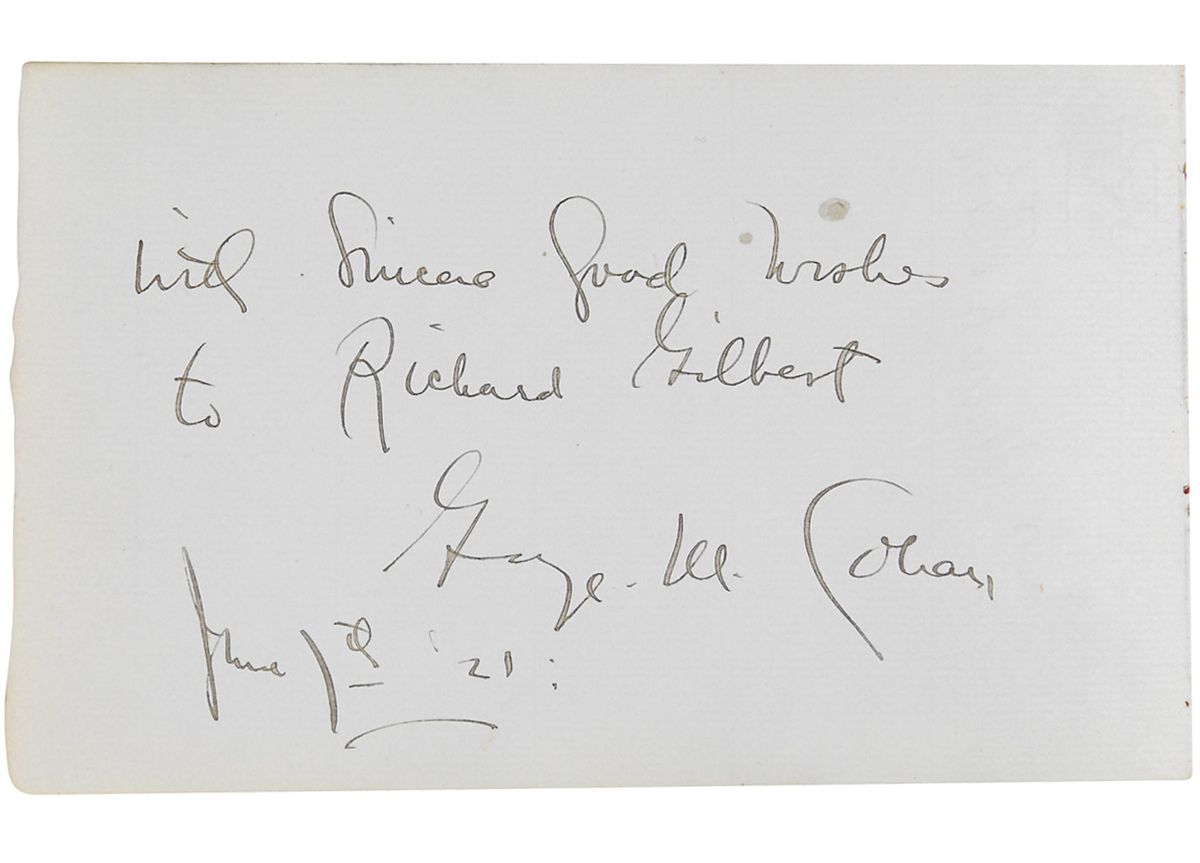 with Sincere Good Wishes
to Richard Gilbert
George. M. Cohan,
June 7th '21: